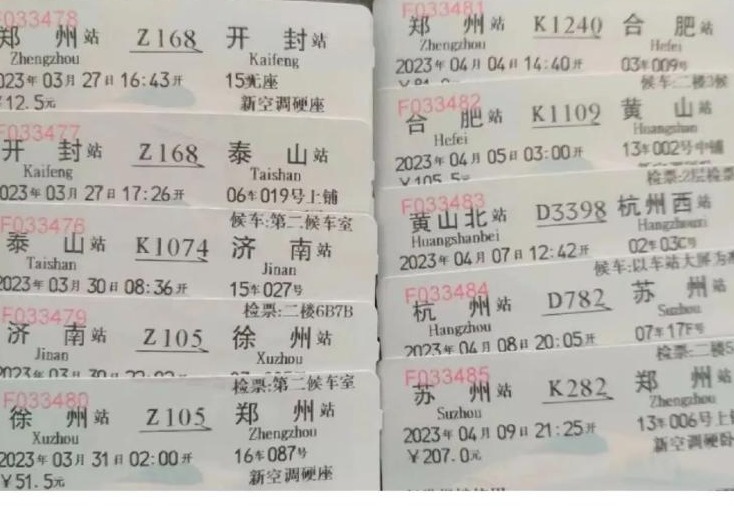 F033478
郑州站 Z168 开封站
Zhengzhou Kaifeng
2023年03月27日16:43开 15车无座
¥12.5元 新空调硬座
F033477
开封站 Z168 泰山站
Kaifeng Taishan
2023年03月27日17:26开 06车019号上铺
F033476 候车:第二候车室
泰山站 K1074 济南站
Taishan Jinan
2023年03月30日08:36开 15车027号
F033479 检票:二楼6B7B
济南站 Z105 徐州站
Jinan Xuzhou
2023年03月30日22:02开
F033480 检票:第二候车室
徐州站 Z105 郑州站
Xuzhou Zhengzhou
2023年03月31日02:00开 16车087号
¥51.5元 新空调硬座
F033481
郑州站 K1240 合肥站
Zhengzhou Hefei
2023年04月04日14:40开 03车009号
候车:二楼3候
F033482
合肥站 K1109 黄山站
Hefei Huangshan
2023年04月05日03:00开 13车002号中铺
¥105.5元
F033483 检票:2层检票
黄山北站 D3398 杭州西站
Huangshanbei Hangzhouxi
2023年04月07日12:42开 02车03C号
F033484 候车:以车站大屏为
杭州站 D782 苏州站
Hangzhou Suzhou
2023年04月08日20:05开 07车17F号
F033485 检票:二楼5
苏州站 K282 郑州站
Suzhou Zhengzhou
2023年04月09日21:25开 13车006号上铺
¥207.0元 新空调硬卧